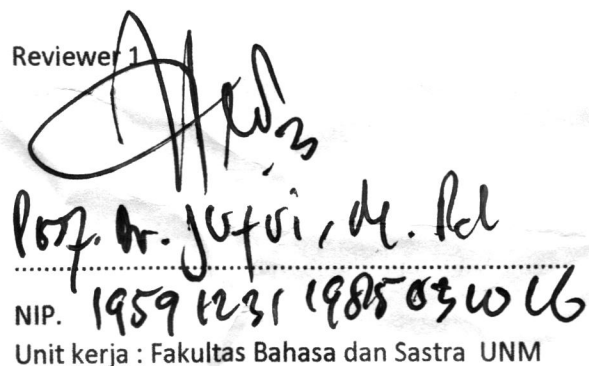 Reviewer 1
Prof. Dr. Jufri, M. Pd
NIP. 19591231 198503 1 016
Unit kerja : Fakultas Bahasa dan Sastra UNM